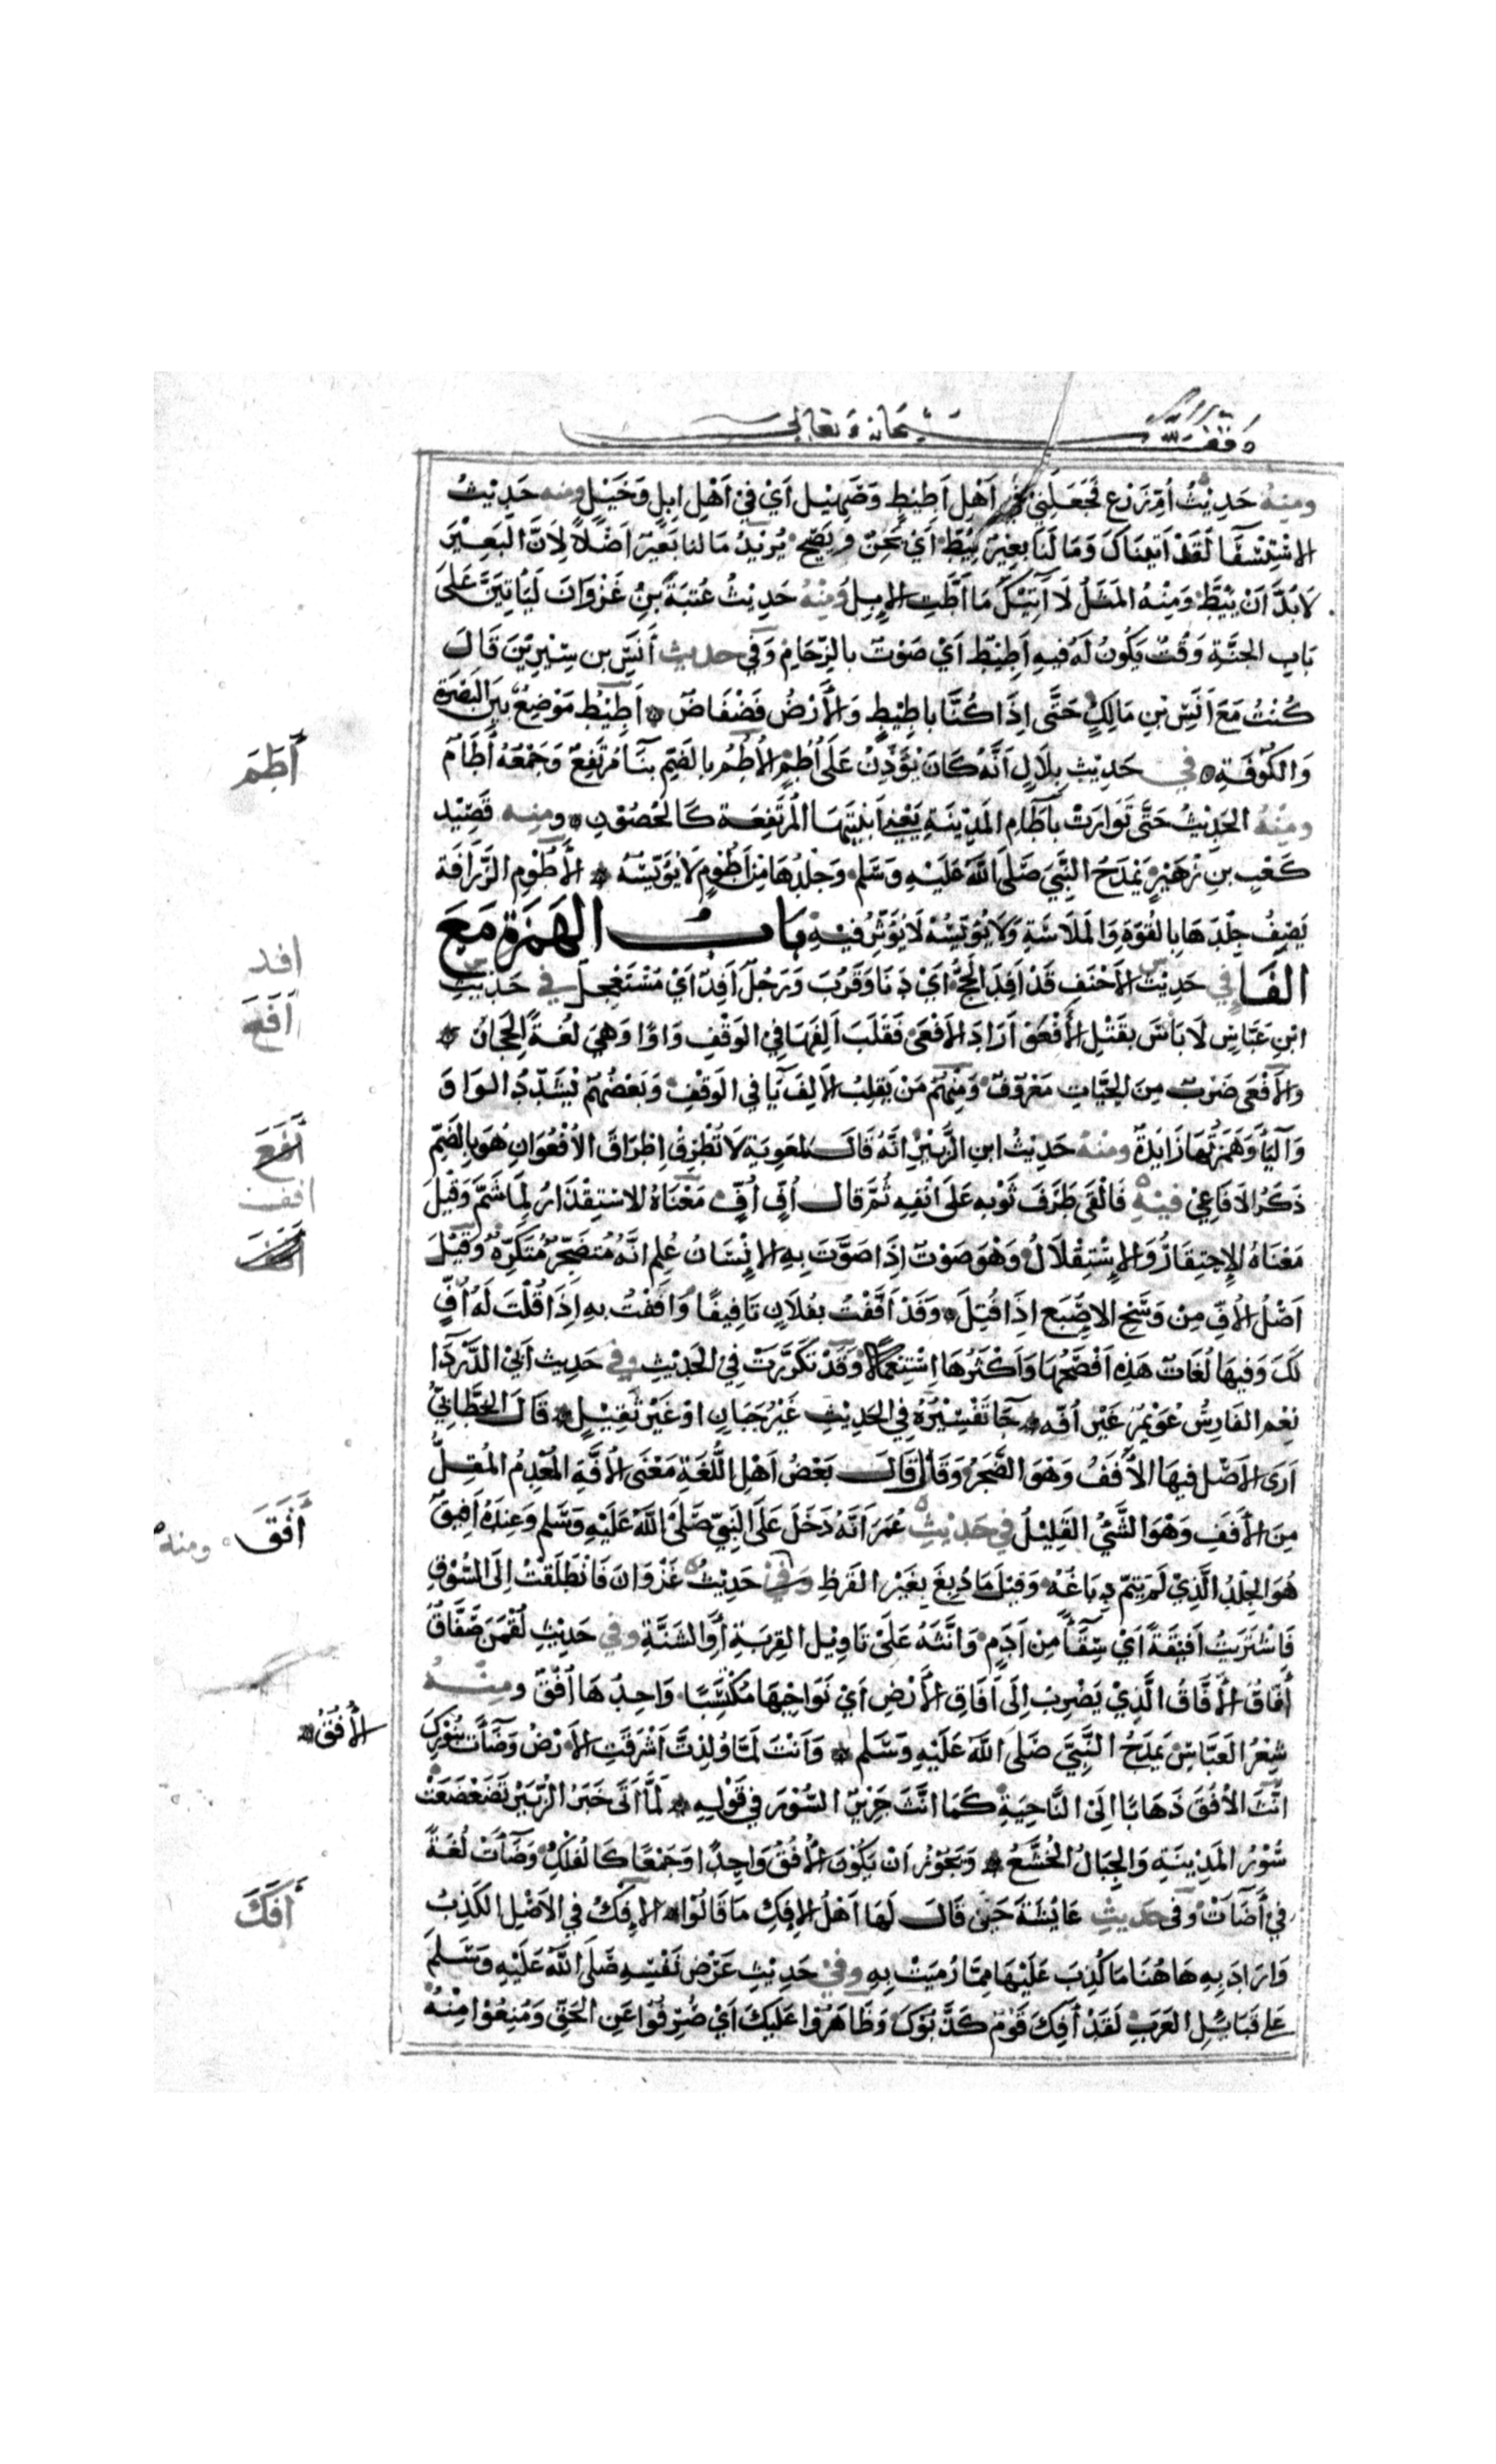 وقف لله سبحانه وتعالى
ومنه حَدِيْثُ أُمِّ زَرْعٍ فَجَعَلَنِيْ فِيْ اَهْلِ اَطِيْطٍ وَصَهِيْلٍ اَيْ فِيْ اَهْلِ اِبِلٍ وَخَيْلٍ ومنه حَدِيْثُ
الاسْتِسْقَا لَقَدْ اَتَيْنَاكَ وَمَا لَنَا بَعِيْرٌ يَئِطُّ أَيْ يَحِنُّ وَيَصِيْحُ يُرِيْدُ مَا لنا بَعِيْرٌ اَصْلًا لِاَنَّ الْبَعِيْرَ
لَا بُدَّ اَنْ يَئِطَّ وَمِنْهُ المَثَلُ لَا آتِيْكَ مَا اَطَّتِ الإبِلُ وَمِنْهُ حَدِيْثُ عُتْبَةَ بْنِ غَزْوَانَ لَيَاْتِيَنَّ عَلَى
بَابِ الجَنَّةِ وَقْتٌ يَكُونُ لَهُ فِيهِ اَطِيْطٌ اَيْ صَوْتٌ بِالزِّحَامِ وَفي حديث أَنَسِ بن سِيْرِيْنَ قَالَ
كُنْتُ مَعَ اَنَسِ بْنِ مَالِكٍ حَتَّى اِذَا كُنَّا بِاَطِيْطٍ وَالأَرْضُ فَضْفَاضٌ اَطِيْطٌ مَوْضِعٌ بَيْنَ البَصْرَةِ
وَالكُوْفَةِ في حَدِيْثِ بِلَالٍ اَنَّهُ كَانَ يُؤَذِّنُ عَلَى أُطُمٍ الأُطُمُ بِالضَّمِّ بِنَاءٌ مُرْتَفِعٌ وَجَمْعُهُ أٰطَامٌ
ومِنْهُ الحَدِيْثُ حَتَّى تَوَارَتْ بِآطَامِ المَدِيْنَةِ يَعْنِي اَبْنِيَتَهَا المُرْتَفِعَة كَالحُصُوْنِ ومنه قَصِيْد
كَعْبِ بنِ زُهَيْرٍ يَمْدَحُ النَّبِيَّ صَلَّى اللّٰهُ عَلَيْهِ وَسَلَّم وَجِلْدُهَا مِنْ اَطُوْمٍ لَا يُؤَيِّسُهُ الأَطُوْمُ الزَّرَافَة
يَصِفُ جِلْدَهَا بِالقُوَّةِ وَالمَلَاسَةِ وَلَا يُؤَيِّسُهُ لَا يُؤَثِّرُ فِيْهِ بَابُ الهَمْزَةِ مَعَ
الفَاءِ في حَدِيْثِ الأَحْنَفِ قَدْ اَفِدَ الحَجُّ أَيْ دَنَا وَقَرُبَ وَرَجُلٌ اَفِدٌ اَيْ مُسْتَعْجِلٌ في حَدِيْثِ
ابْنِ عَبَّاسٍ لَا بَاْسَ بِقَتْلِ الأَفْعَوْ اَرَادَ الأَفْعَى فَقَلَبَ اَلِفَهَا فِي الوَقْفِ وَاوًا وَهِيَ لُغَةُ الحِجَازِ
وَالأَفْعَى ضَرْبٌ مِنَ الحَيَّاتِ مَعْرُوْفٌ وَمِنْهُمْ مَنْ يَقْلِبُ الأَلِفَ يَاءً فِي الوَقْفِ وَبَعْضُهُمْ يُشَدِّدُ الوَاوَ
وَاليَاءَ وَهَمْزَتُهَا زَايِدَةٌ ومنه حَدِيْثُ ابنِ الزُّبَيْرِ اَنَّهُ قَالَ لمُعٰوِيَةِ لَا تُطْرِقْ اِطْرَاقَ الأُفْعُوَانِ هُوَ بِالضَّمِّ
ذَكَرُ الاَفَاعِيْ فِيْهِ فَاَلْقَى طَرَفَ ثَوْبِهِ عَلَى اَنْفِهِ ثُمَّ قَالَ اُفٍّ اُفٍّ مَعْنَاهُ الاسْتِقْذَارُ لِمَا شَمَّ وَقِيْلَ
مَعْنَاهُ الاِحْتِقَارُ وَالاِسْتِقْلَالُ وَهُوَ صَوْتٌ اِذَا صَوَّتَ بِهِ الإِنْسَانُ عُلِمَ اَنَّهُ مُتَضَجِّرٌ مُتَكَرِّهٌ وَقِيْلَ
اَصْلُ الأُفِّ مِنْ وَسَخِ الاِصْبَعِ اِذَا فُتِلَ وَقَدْ اَفَّفْتُ بِفُلَانٍ تَاْفِيْفًا وَاَفَفْتُ بِهِ اِذَا قُلْتَ لَهُ اُفٍّ
لَكَ وَفِيهَا لُغَاتٌ هٰذِهِ اَفْصَحُهَا وَاَكْثَرُهَا اِسْتِعْمَالًا وَقَدْ تَكَرَّرَتْ فِي الحَدِيْثِ وفي حَدِيث اَبِي الدَّرْدَا
نِعْمَ الفَارِسُ عُوَيْمِرٌ غَيْرَ اُفَّه جَا تَفْسِيْرُهُ فِي الحَدِيْثِ غَيْرُ جَبَانٍ اَوْ غَيْرُ ثَقِيْلٍ قَالَ الخَطَّابِيُّ
اَرَى الأَصْلَ فِيهَا الأَفَفُ وَهُوَ الضَّجَرُ وَقَالَ قَالَ بَعْضُ اَهْلِ اللُّغَةِ مَعْنَى الأُفَّةِ المُعْدِمُ المُقِلُّ
مِنَ الأَفَفِ وَهُوَ الشَّيْءُ القَلِيْلُ في حَدِيْثِ عُمَرَ اَنَّهُ دَخَلَ عَلَى النَّبِيِّ صَلَّى اللّٰهُ عَلَيْهِ وَسَلَّم وَعِنْدَهُ اَفِيْقٌ
هُوَ الجِلْدُ الَّذِيْ لَمْ يَتِمَّ دِبَاغُهُ وَقِيْلَ مَا دُبِغَ بِغَيْرِ القَرَظِ وفي حَدِيْثِ غَزْوَانَ فَانْطَلَقْتُ اِلَى السُّوْقِ
فَاشْتَرَيْتُ اَفِيْقَةً اَيْ سِقَاءً مِنْ اَدَمٍ وَاَنَّثَهُ عَلَى تَاوِيْلِ القِرْبَةِ أَوِ الشَّنَّةِ وفي حَدِيْثِ لُقْمٰنَ صَفَّاقٌ
أَفَّاقٌ الأَفَّاقُ الَّذِيْ يَضْرِبُ اِلَى اٰفَاقِ الأَرْضِ اَيْ نَوَاحِيْهَا مُكْتَسِبًا وَاحِدُهَا اُفُقٌ ومنه
شِعْرُ العَبَّاسِ يَمْدَحُ النَّبِيَّ صَلَّى اللّٰهُ عَلَيْهِ وَسَلَّم وَاَنْتَ لَمَّا وُلِدْتَّ اَشْرَقَتِ الأَرْضُ وَضَاءَتْ بِنُوْرِكَ
الأُفُقُ
اَنَّثَ الأُفُقَ ذَهَابًا اِلَى النَّاحِيَةِ كَمَا اَنَّثَ جَرِيْرٌ السُّوْرَ فِي قَوْلِهِ لَمَّا اَتَى خَبَرُ الزُّبَيْرِ تَضَعْضَعَتْ
سُوْرُ المَدِيْنَةِ وَالجِبَالُ الخُشَّعُ وَيَجُوْزُ اَنْ يَكُوْنَ الأُفُقُ وَاحِدًا وَجَمْعًا كَالفُلْكِ وَضَاءَتْ لُغَةٌ
فِي أَضَاءَتْ وفي حديث عَائِشَةَ حَيْنَ قَالَ لَهَا اَهْلُ الإِفْكِ مَا قَالُوْا الإِفْكُ فِي الأَصْلِ الكَذِبُ
وَاَرَادَ بِهِ هَاهُنَا مَا كُذِبَ عَلَيْهَا مِمَّا رُمِيَتْ بِهِ وفي حَدِيْثِ عَرْضِ نَفْسِهِ صَلَّى اللّٰهُ عَلَيْهِ وَسَلَّمَ
عَلَى قَبَائِلِ العَرَبِ لَقَدْ أُفِكَ قَوْمٌ كَذَّبُوْكَ وَظَاهَرُوْا عَلَيْكَ اَيْ صُرِفُوْا عَنِ الحَقِّ وَمُنِعُوْا مِنْهُ
أَطَمَ
افد
أفع
افف
أَفَقَ ومنه
أَفَكَ